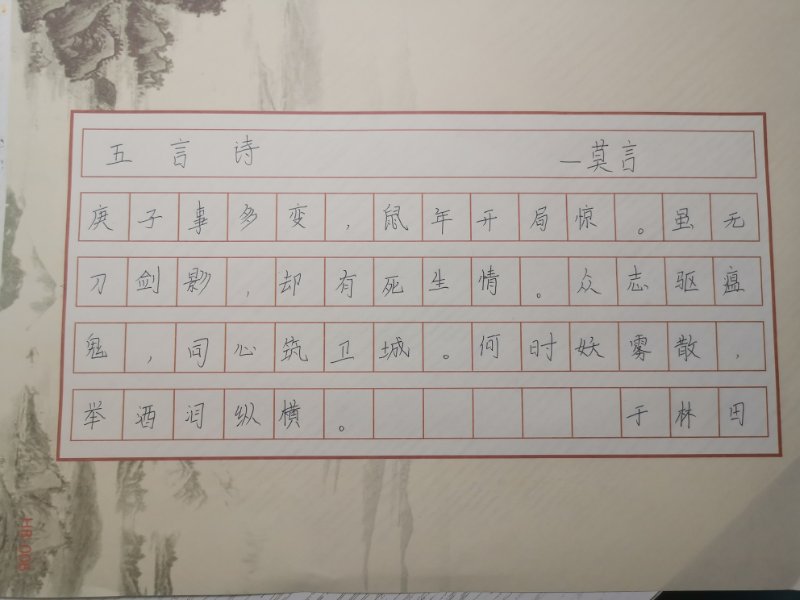 五言诗 —莫言
庚子事多变,鼠年开局惊。虽无
刀剑影,却有死生情。众志驱瘟
鬼,同心筑卫城。何时妖雾散,
举酒泪纵横。 于林田
HB 006